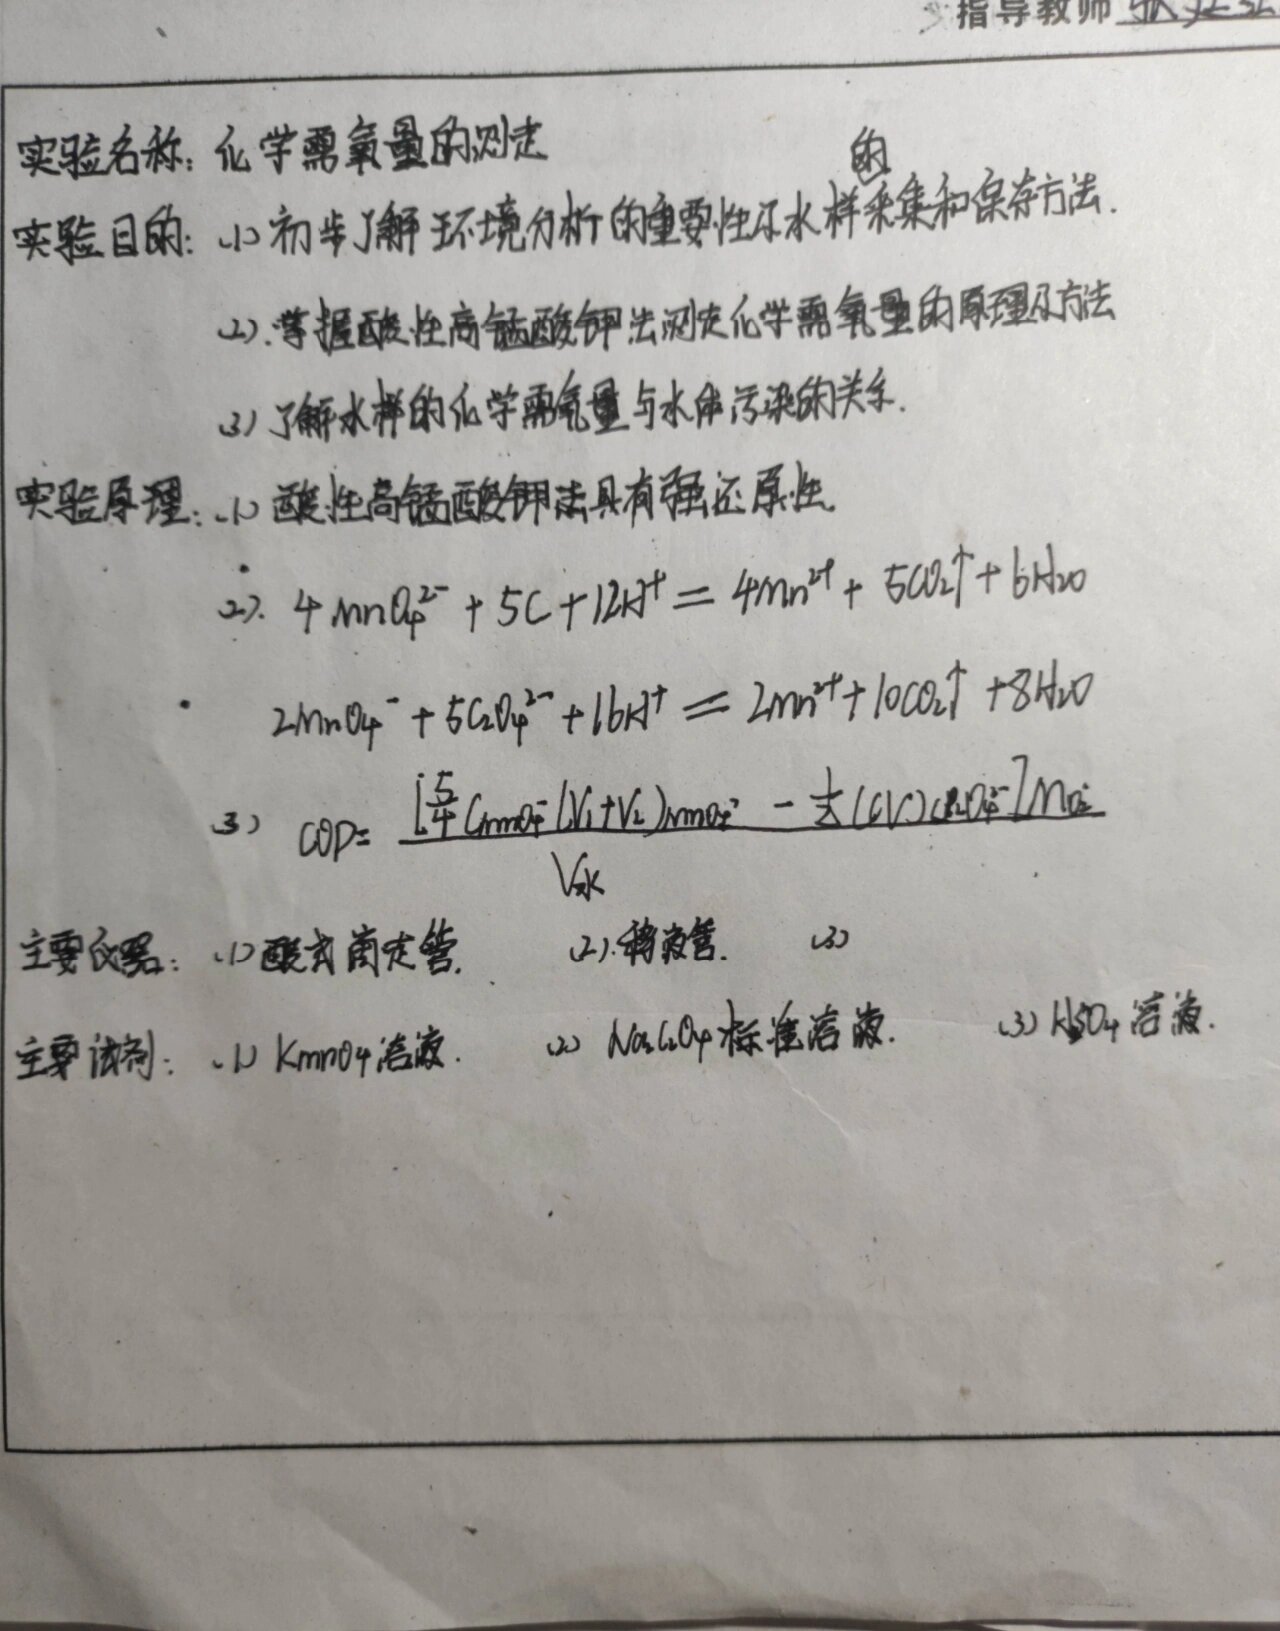 指导教师
实验名称：化学需氧量的测定
实验目的：(1) 初步了解环境分析的重要性及水样的采集和保存方法.
(2). 掌握酸性高锰酸钾法测定化学需氧量的原理及方法
(3) 了解水样的化学需氧量与水体污染的关系.
实验原理：(1) 酸性高锰酸钾法具有强还原性.
(2). 4MnO₄²⁻ + 5C + 12H⁺ = 4Mn²⁺ + 5CO₂↑ + 6H₂O
2MnO₄⁻ + 5C₂O₄²⁻ + 16H⁺ = 2Mn²⁺ + 10CO₂↑ + 8H₂O
(3) COD= [5/4 C MnO₄⁻ (V₁+V₂) MnO₄⁻ - 1/2 (CV) C₂O₄²⁻] M O₂
V水
主要仪器：(1) 酸式滴定管. (2). 移液管. (3)
主要试剂：(1) KmnO₄溶液. (2) Na₂C₂O₄标准溶液. (3) H₂SO₄溶液.